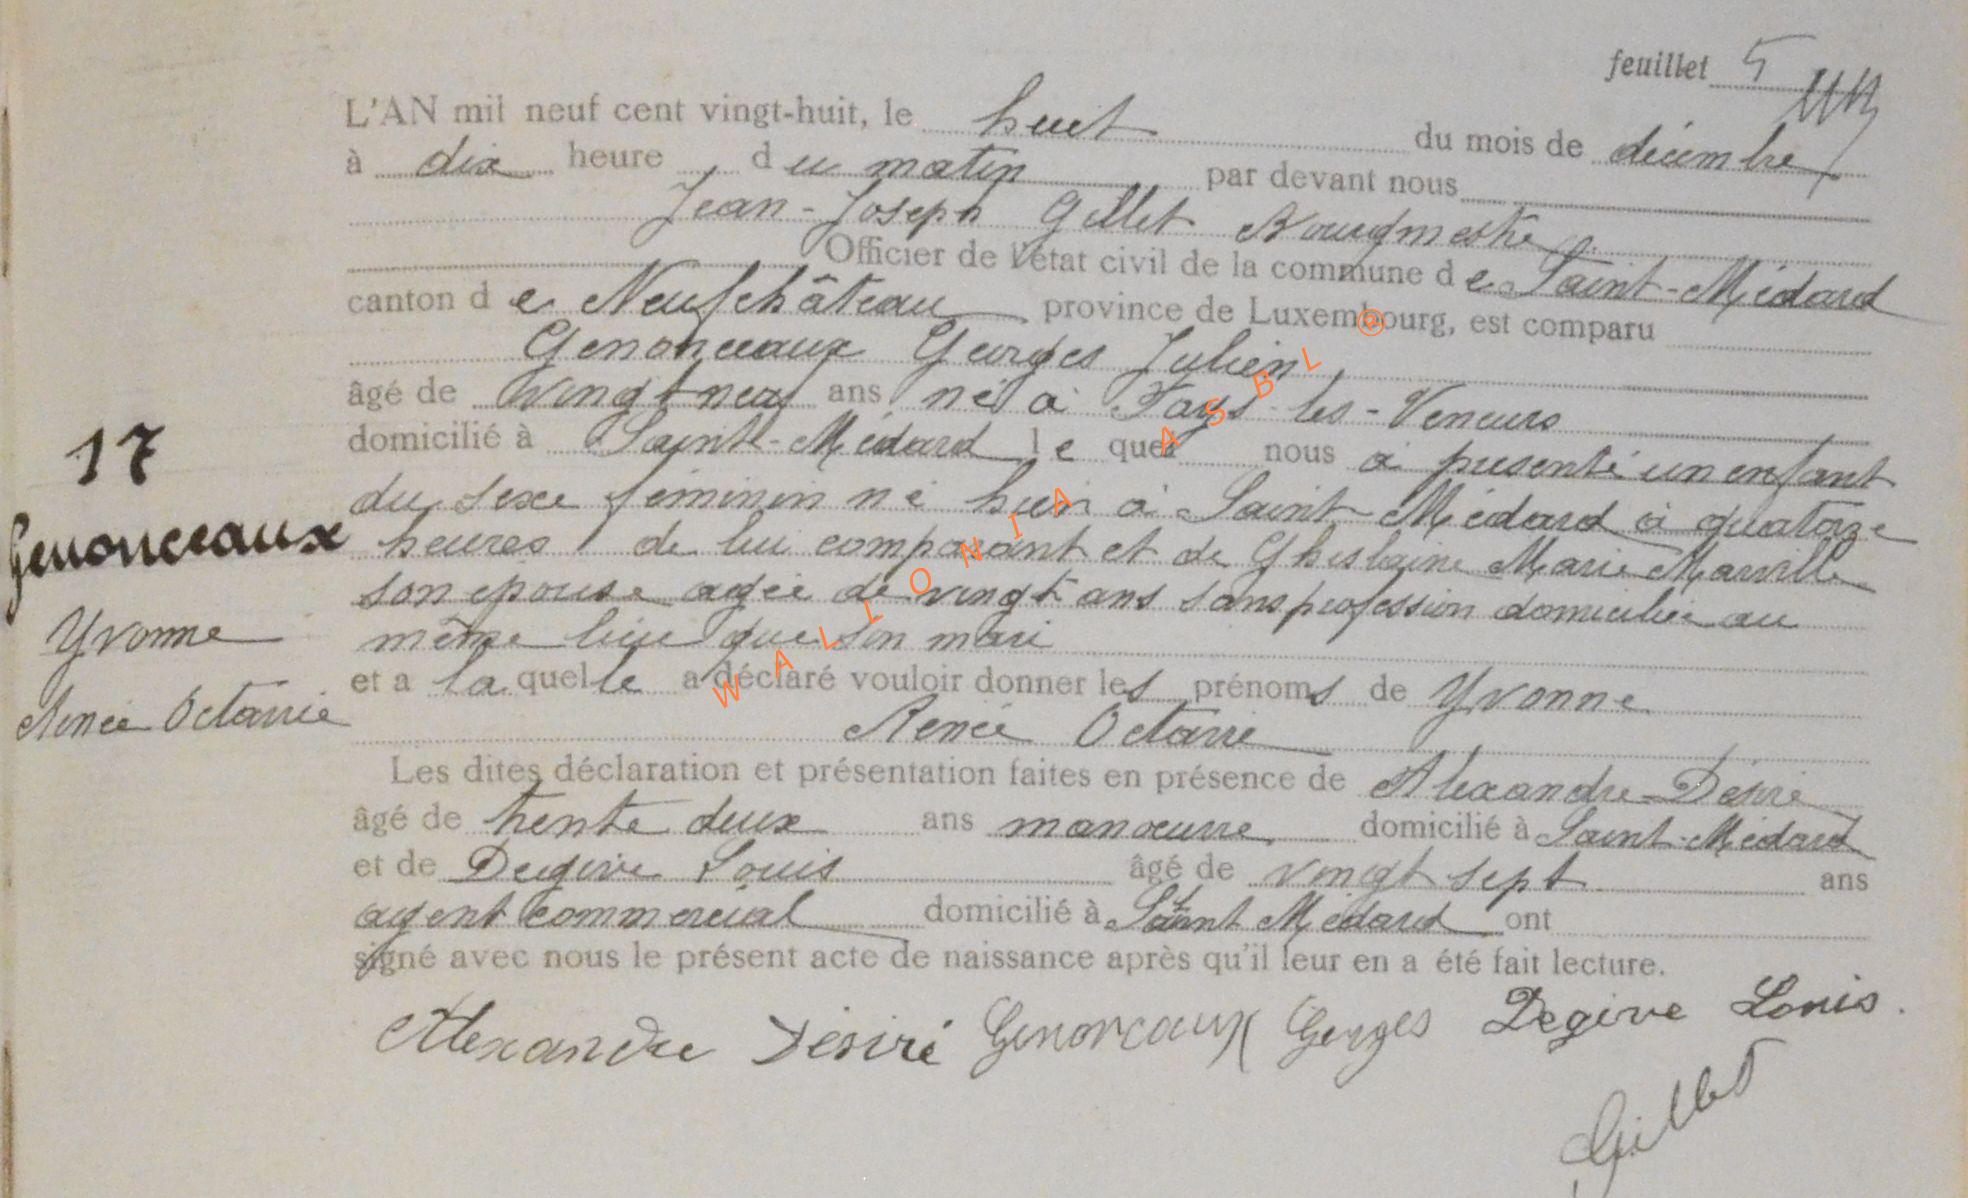 feuillet 5
L'AN mil neuf cent vingt-huit, le huit du mois de décembre
à dix heure du matin par devant nous
Jean-Joseph Gillet Bourgmestre
Officier de l'état civil de la commune de Saint-Médard
canton de Neufchâteau province de Luxembourg, est comparu
Genonceaux Georges Julien
âgé de vingt neuf ans né à Fays-les-Veneurs
domicilié à Saint-Médard lequel nous a présenté un enfant
17
du sexe féminin né hier à Saint-Médard à quatorze
Genonceaux
heures de lui comparant et de Ghislaine Marie Marville
son épouse agée de vingt ans sans profession domiciliée au
Yvonne
même lieu que son mari
et a laquelle a déclaré vouloir donner les prénoms de Yvonne
Renée Octavie
Renée Octavie
Les dites déclaration et présentation faites en présence de Alexandre Désiré
âgé de trente deux ans manœuvre domicilié à Saint-Médard
et de Degive Louis âgé de vingt sept ans
agent commercial domicilié à Saint Médard ont
signé avec nous le présent acte de naissance après qu'il leur en a été fait lecture.
Alexandre Désiré Genonceaux Georges Degive Louis.
Gillet
WALLONIA ASBL ®